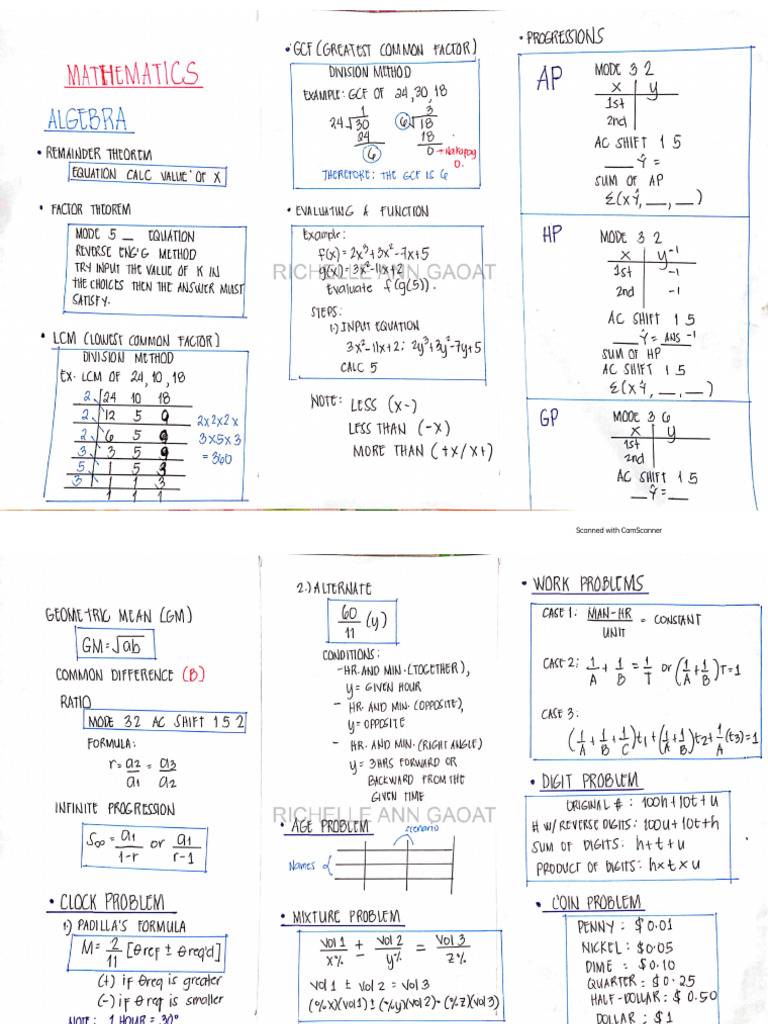 MATHEMATICS
ALGEBRA
• REMAINDER THEOREM
EQUATION CALC VALUE OF X
• FACTOR THEOREM
MODE 5 _ EQUATION
REVERSE ENG'G METHOD
TRY INPUT THE VALUE OF K IN
THE CHOICES THEN THE ANSWER MUST
SATISFY.
• LCM (LOWEST COMMON FACTOR)
DIVISION METHOD
EX. LCM OF 24, 10, 18
2 24 10 18
2 12 5 9
2 6 5 9
3 3 5 9
5 1 5 3
3 1 1 3
1 1 1
2x2x2x
3x5x3
= 360
• GCF (GREATEST COMMON FACTOR)
DIVISION METHOD
EXAMPLE: GCF OF 24, 30, 18
1 3
24√30 6√18
24 18
6 0 → Nakapag
0.
THEREFORE: THE GCF IS 6
• EVALUATING A FUNCTION
Example:
f(x) = 2x³+3x²-7x+5
g(x) = 3x²-11x+2
Evaluate f(g(5)).
STEPS:
1.) INPUT EQUATION
3x²-11x+2 : 2y³+3y²-7y+5
CALC 5
NOTE: LESS (x-)
LESS THAN (-x)
MORE THAN (+x/x+)
RICHELLE ANN GAOAT
• PROGRESSIONS
AP
MODE 3 2
X Y
1st
2nd
AC SHIFT 1 5
___ Ŷ =
SUM OF AP
Σ(XŶ, __, __)
HP
MODE 3 2
X Y⁻¹
1st -1
2nd -1
AC SHIFT 1 5
__ Ŷ = ANS⁻¹
SUM OF HP
AC SHIFT 1 5
Σ(XŶ, __, __)
GP
MODE 3 6
X Y
1st
2nd
AC SHIFT 1 5
__ Ŷ = __
Scanned with CamScanner
GEOMETRIC MEAN (GM)
GM = √ab
COMMON DIFFERENCE (B)
RATIO
MODE 32 AC SHIFT 1 5 2
FORMULA:
r = a2/a1 = a3/a2
INFINITE PROGRESSION
S∞ = a1/1-r or a1/r-1
• CLOCK PROBLEM
1.) PADILLA'S FORMULA
M = 2/11 [θref ± θreq'd]
(+) if θreq is greater
(-) if θreq is smaller
NOTE: 1 HOUR = 30°
2.) ALTERNATE
60/11 (y)
CONDITIONS:
- HR. AND MIN. (TOGETHER),
y = GIVEN HOUR
- HR. AND MIN. (OPPOSITE),
y = OPPOSITE
- HR. AND MIN. (RIGHT ANGLE)
y = 3HRS FORWARD OR
BACKWARD FROM THE
GIVEN TIME
RICHELLE ANN GAOAT
• AGE PROBLEM
scenario
Names
• MIXTURE PROBLEM
Vol 1/x% ± Vol 2/y% = Vol 3/z%
Vol 1 ± Vol 2 = Vol 3
(%x)(Vol1) ± (%y)(Vol2) = (%z)(Vol3)
• WORK PROBLEMS
CASE 1: MAN-HR/UNIT = CONSTANT
CASE 2: 1/A + 1/B = 1/T or (1/A + 1/B)T = 1
CASE 3:
(1/A + 1/B + 1/C)t1 + (1/A + 1/B)t2 + 1/A(t3) = 1
• DIGIT PROBLEM
ORIGINAL #: 100h+10t+u
# W/ REVERSE DIGITS: 100u+10t+h
SUM OF DIGITS: h+t+u
PRODUCT OF DIGITS: h×t×u
• COIN PROBLEM
PENNY: $0.01
NICKEL: $0.05
DIME: $0.10
QUARTER: $0.25
HALF-DOLLAR: $0.50
DOLLAR: $1